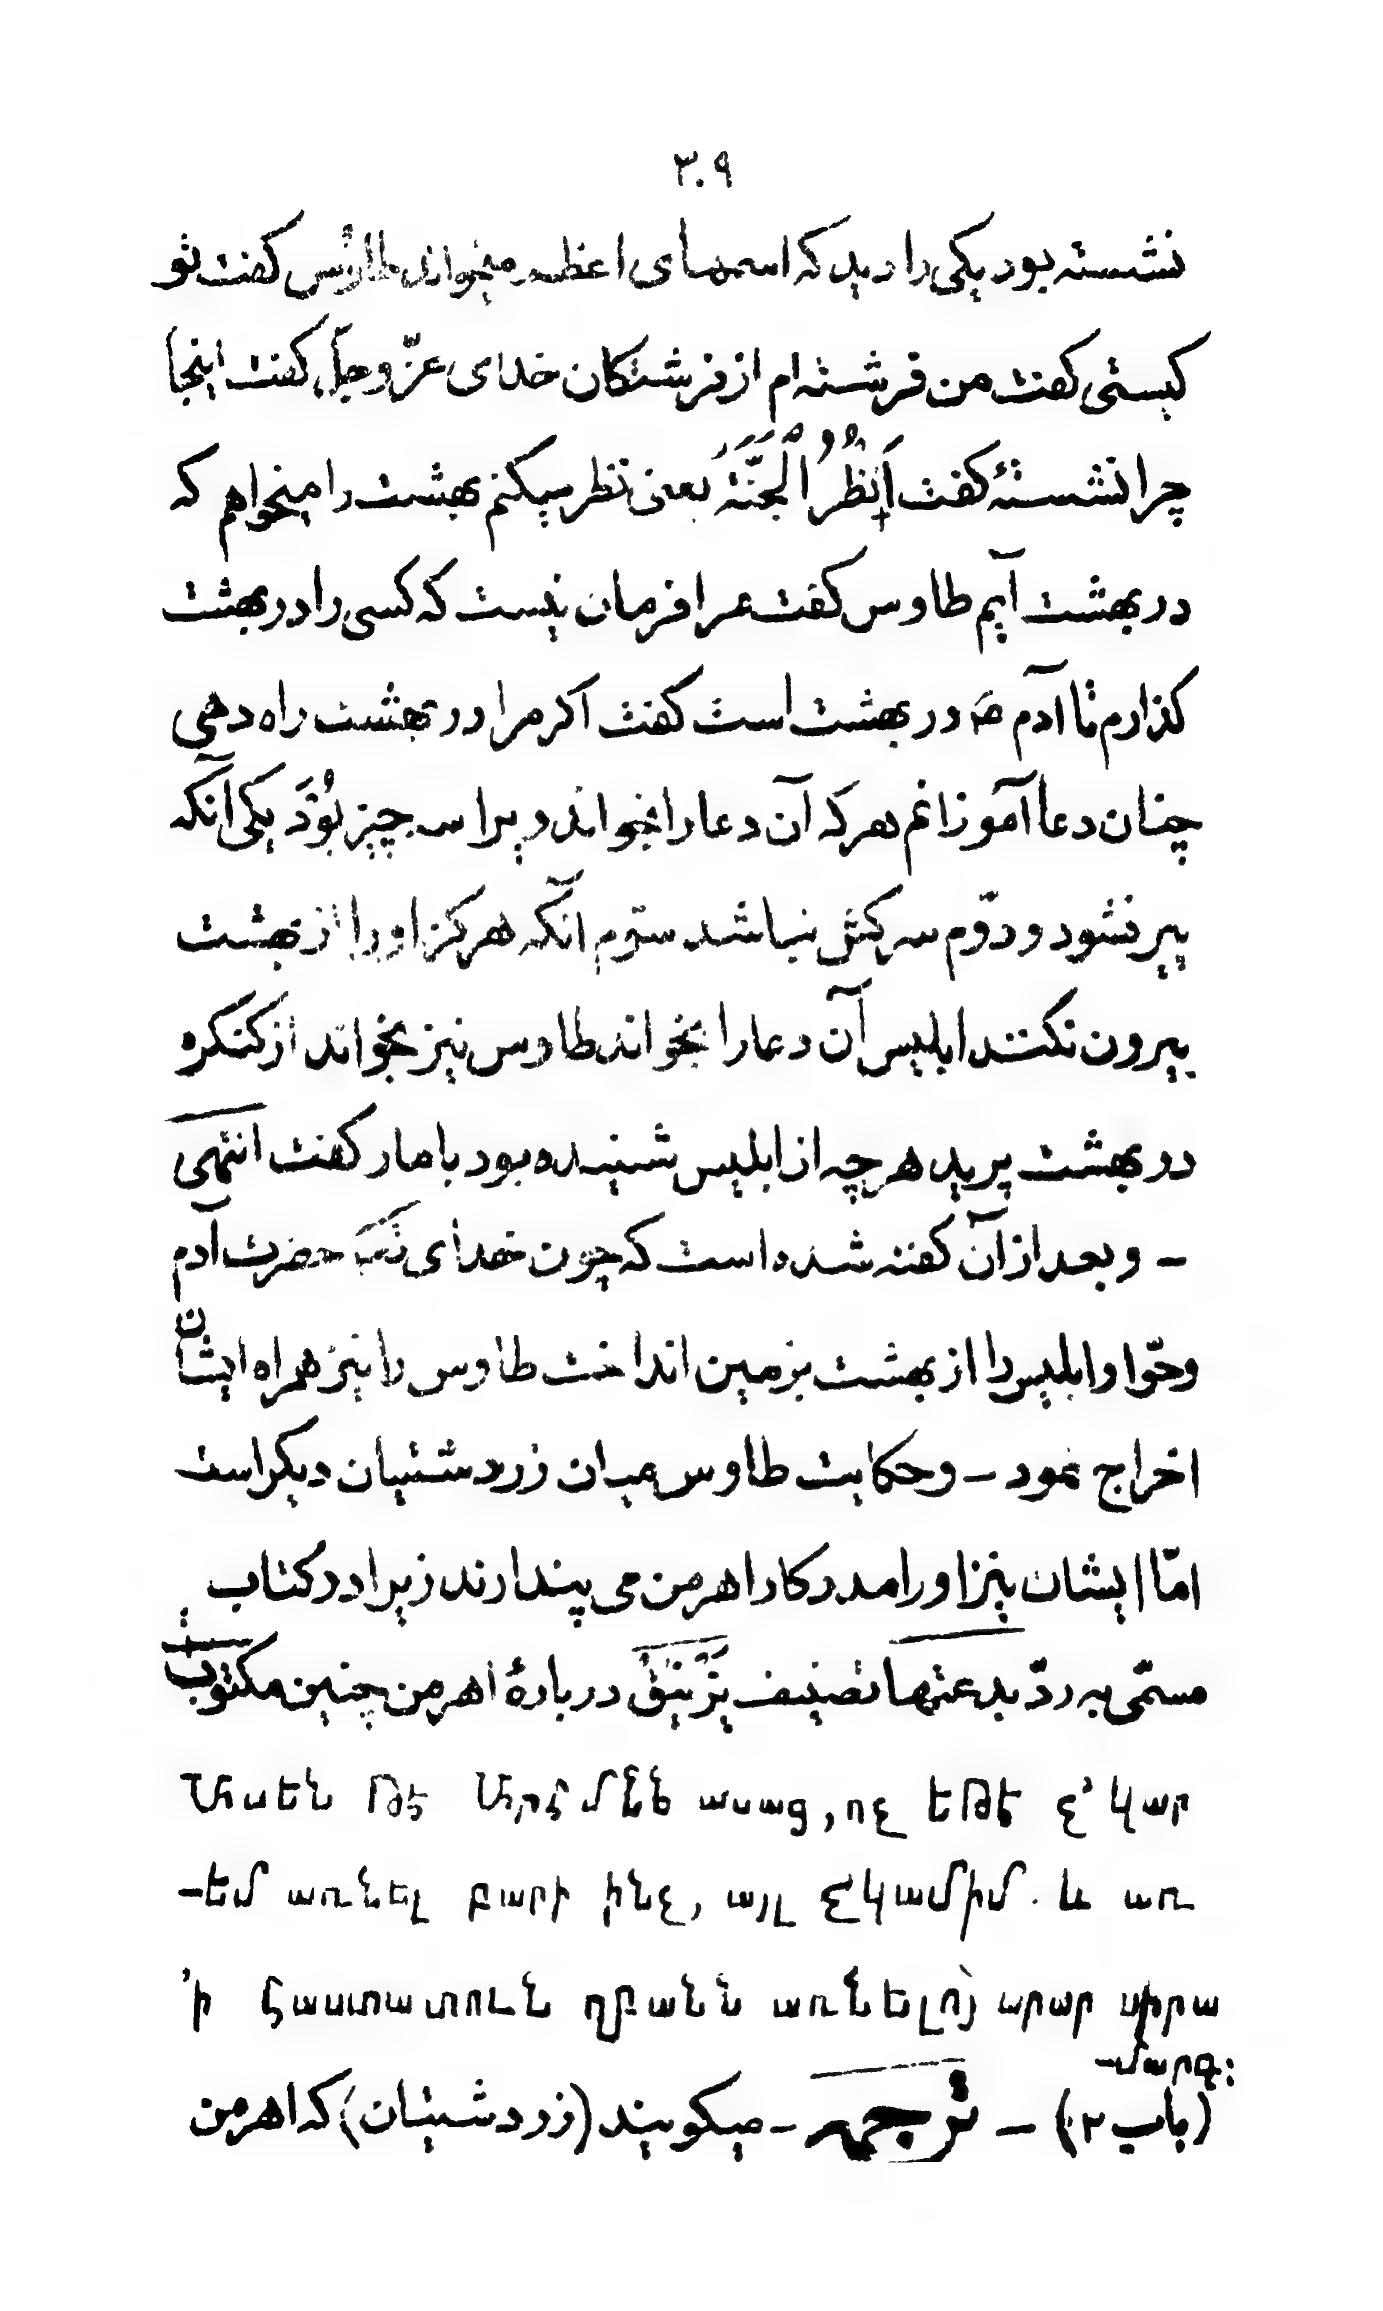 ۳۰۹
نشسته بود یکی را دید که اسمهای اعظم میخواند طاؤس کفت تو
کیستی کفت من فرشته ام از فرشتکان خدای عزّ وجلّ کفت اینجا
چرا نشستهٔ کفت اَنْظُرُ الْجَنَّةَ یعنی نظر میکنم بهشت را میخواهم که
در بهشت آیم طاوس کفت مرا فرمان نیست که کسی را در بهشت
کذارم تا آدم ص در بهشت است کفت اکر مرا در بهشت راه دهی
چنان دعا آموزانم هر که آن دعا را بخواند ویرا سه چیز بُوَد یکی آنکه
پیر نشود و دوّم سرکش نباشد سوّم آنکه هرکز او را از بهشت
بیرون نکنند ابلیس آن دعا را بخواند طاوس نیز بخواند از کنکره
در بهشت پرید هرچه از ابلیس شنیده بود با مار کفت انتهی
– وبعد از آن کفته شده است که چون خدای حضرت آدم
وحوّا وابلیس را از بهشت بزمین انداخت طاوس را نیز همراه ایشان
اخراج نمود – وحکایت طاوس میان زردشتیان دیکر است
امّا ایشان نیز او را مددکار اهرمن می پندارند زیرا در کتاب
مسمّی به ردّ بدعتها تصنیف یزنیق دربارهٔ اهرمن چنین مکتوبست
Ասեն թէ Արհմնն ասաց, ոչ եթէ չ՚կար
-եմ առնել բարի ինչ, այլ չկամիմ. և առ
՚ի հաստատուն զբանն առնելոյ արար սիրա
-մարգ։
(باب ۲) – ترجمه – میکویند (زردشتیان) که اهرمن